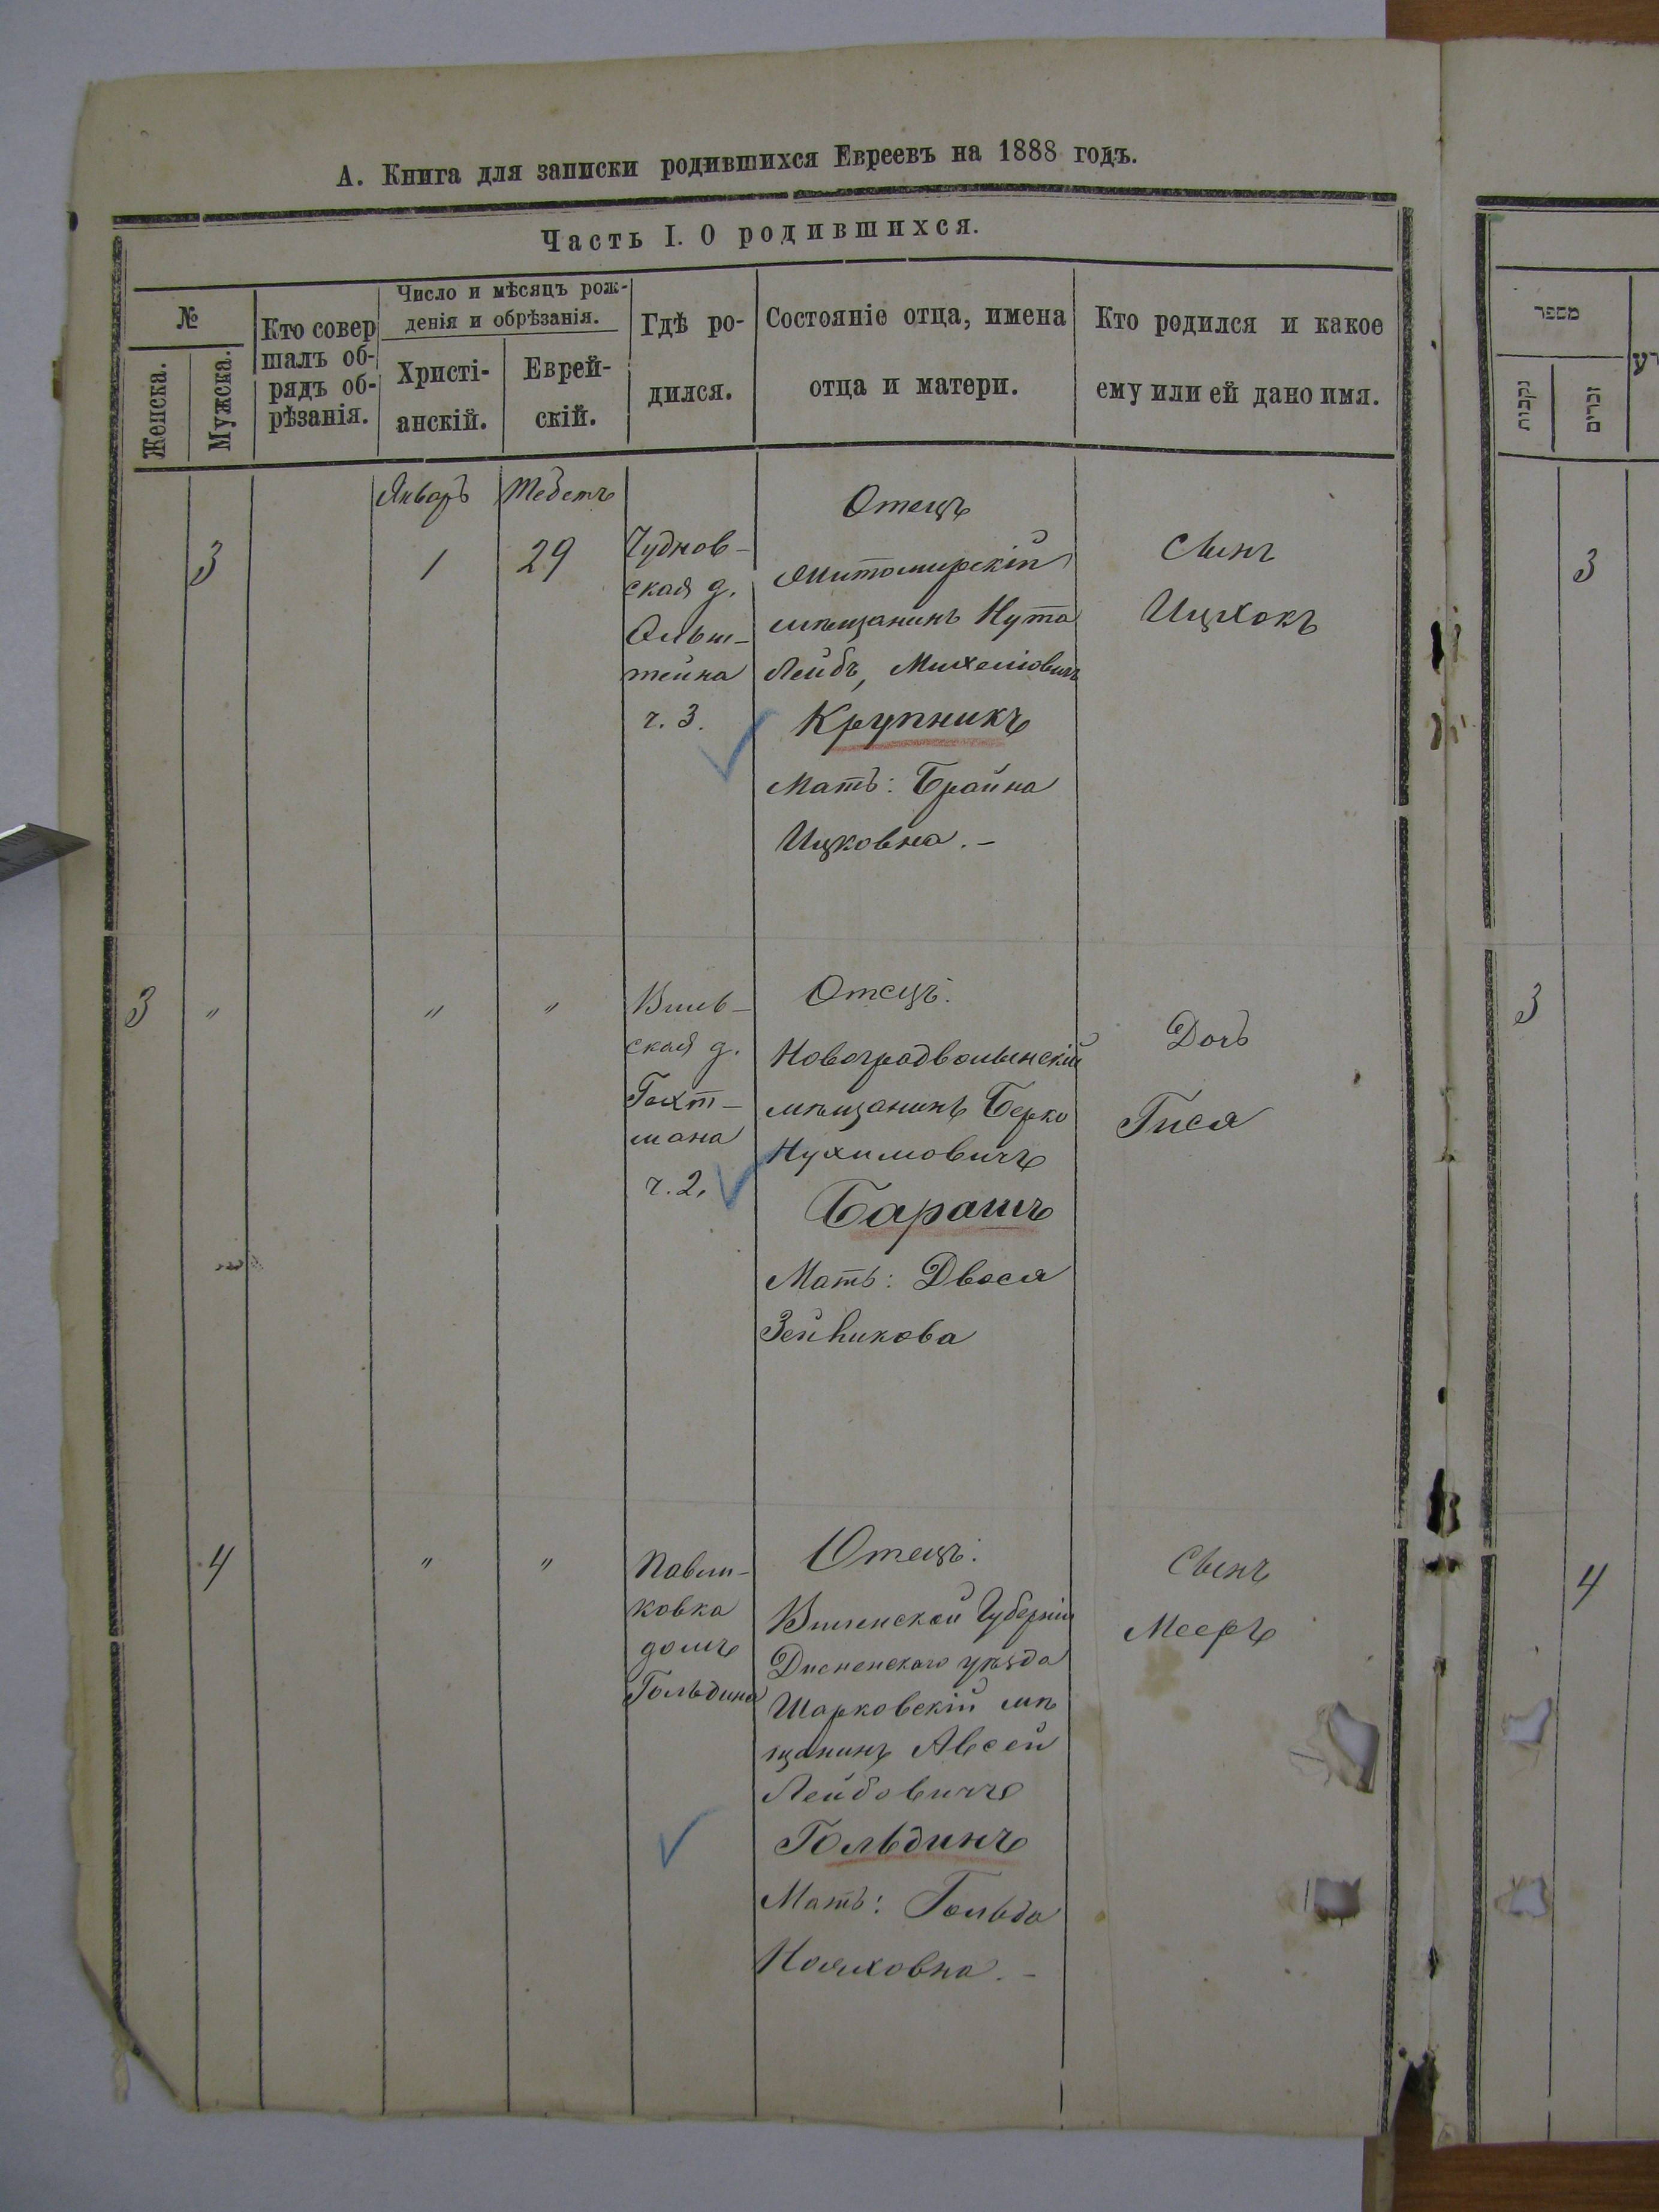 А. Книга для записки родившихся Евреевъ на 1888 годъ.
Часть I. О родившихся.
№
Женска.
Мужска.
Кто совер
шалъ об-
рядъ об-
рѣзанія.
Число и мѣсяцъ рож-
денія и обрѣзанія.
Христі-
анскій.
Еврей-
скій.
Гдѣ ро-
дился.
Состояніе отца, имена
отца и матери.
Кто родился и какое
ему или ей дано имя.
מספר
נקבות
זכרים
3
Январь
1
Тебетъ
29
Чуднов-
ская д.
Ольш-
тейна
ч. 3.
Отецъ
Житомирскій
мѣщанинъ Нута
Лейбъ, Михеліовичъ
Крупникъ
Мать: Брайна
Ицковна. –
Сынъ
Ицхокъ
3
3
"
"
"
Виль-
ская д.
Гехт-
мана
ч. 2.
Отецъ:
Новоградволынскій
мѣщанинъ Берко
Нухимовичъ
Барашъ
Мать: Двося
Дочь
Гися
3
4
"
"
Павли-
ковка
домъ
Гольдина
Отецъ:
Виленской Губерніи
Дисненскаго уѣзда
Шарковскій мѣ
щанинъ Авсей
Лейбовичъ
Гольдинъ
Мать: Гольда
Сынъ
Мееръ
4